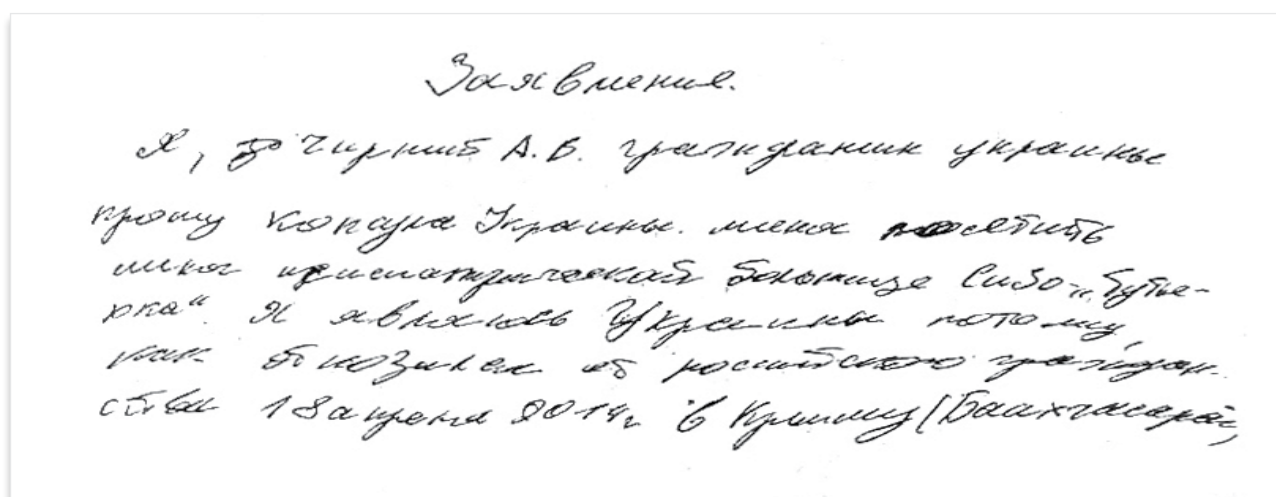 Заявление.
Я, Чирний А.В. гражданин украины
прошу копсула Украины. меня посетить
меня в больнице Сизо-„Бутыр-
рка“. Я являюсь Украины потому,
как отказался от российского граждан-
ства 18 апреля 2014г в Крыму (Баахчисарай,